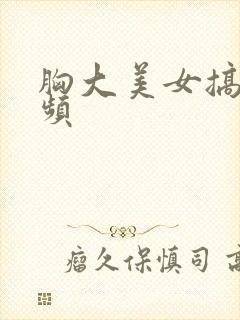 胸大美女搞
频
瘤久保慎司 高